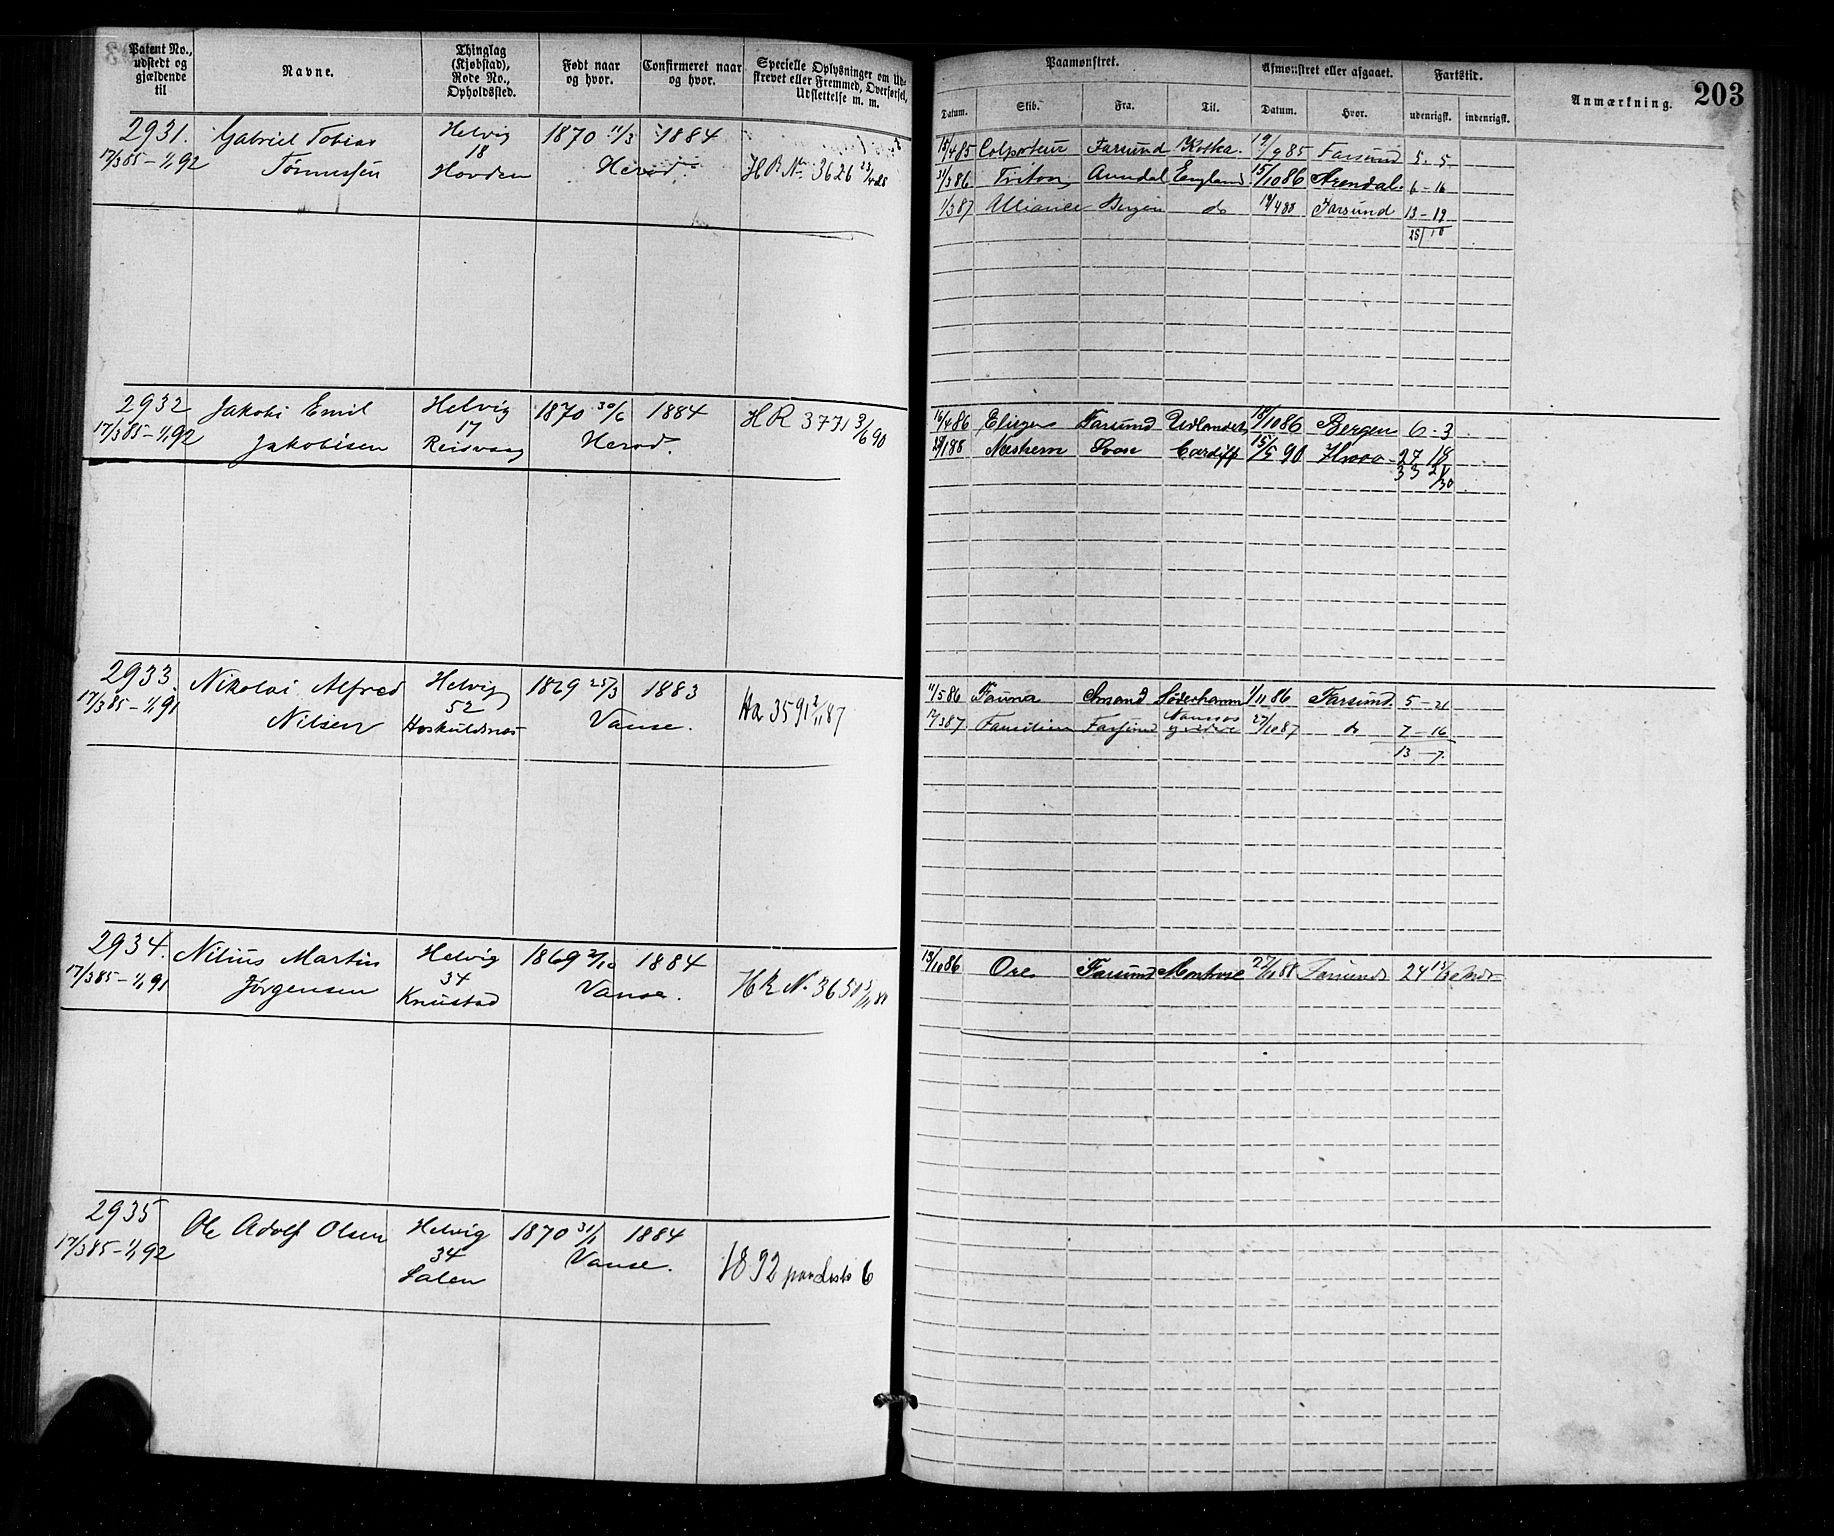 Patent No., udstedt og gjældende til
Navne.
Thinglag (Kjøbstad), Rode No., Opholdssted.
Født naar og hvor.
Confirmeret naar og hvor.
Specielle Oplysninger om Udskrevet eller Fremmed, Overførsel, Udslettelse m. m.
Paamønstret.
Afmønstret eller afgaaet.
Fartstid.
Anmærkning.
203
Datum.
Skib.
Fra.
Til.
Datum.
Hvor.
udenrigsk.
indenrigsk.
2931. Gabriel Tobias Helvig 1870 11/3 1884
17/3 85 – 1/1 92 Tønnessen 18 Hovden Herad. HR No 3626
15/4 85 Colporteur Farsund Kotka. 19/9 85 Farsund 5 - 5
31/3 86 Triton Arendal England 15/10 86 Arendal. 6 - 16
1/3 87 Alliance Bergen do 19/4 88 Farsund 13 - 19
25/10
2932 Jakob Emil Helvig 1870 30/6 1884 HR 3771 3/6 90
17/3 85 – 1/1 92 Jakobsen 17 Reisvaag Herad.
16/4 86 Eliezer Farsund Udlandet 18/10 86 Bergen 6 - 3
Næshem Cardiff 15/5 90 27 18
33 21
/30
2933. Nikolai Alfred Helvig 1869 25/3 1883
17/3 85 – 1/1 91 Nilsen 52 Hoskuldsnæs Vanse. HR 3591 2/11 87
11/5 86 Fauna Søderhamn 1/11 86 Farsund. 5 - 21
Familien Farsund 27/10 87 do 7 - 16
13 - 7.
2934. Nilius Martin Helvig 1869 2/10 1884
17/3 85 – 1/1 91 Jørgensen 34 Knustad Vanse. HR No 3650
13/10 86 Ore Farsund Montrose 27/11 88 Farsund 24
2935 Ole Adolf Olsen Helvig 1870 31/1 1884
17/3 85 – 1/1 92 34 Salen Vanse. 1892 paa Liste 6